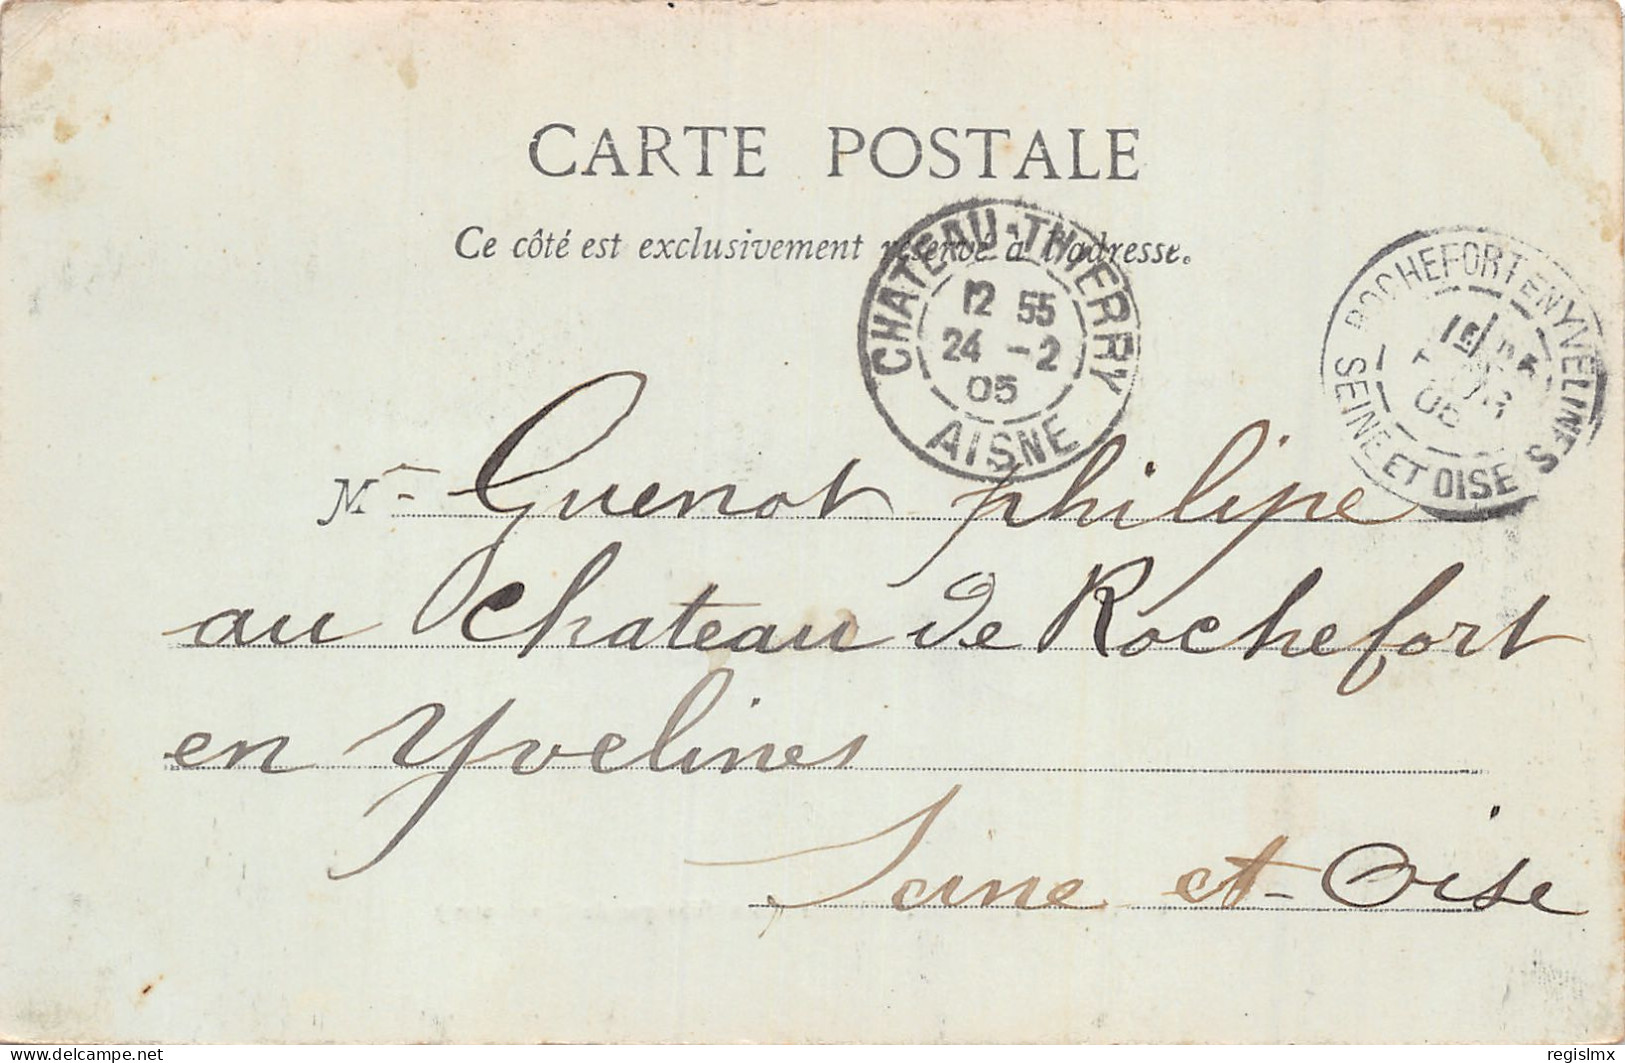 CARTE POSTALE
Ce côté est exclusivement réservé à l'adresse.
CHATEAU-THIERRY
12 55
24 -2
05
AISNE
ROCHEFORT EN YVELINES
05
SEINE ET OISE
M Guenot philipe
au Chateau de Rochefort
en Yvelines
Seine et-Oise
delcampe.net
regislmx